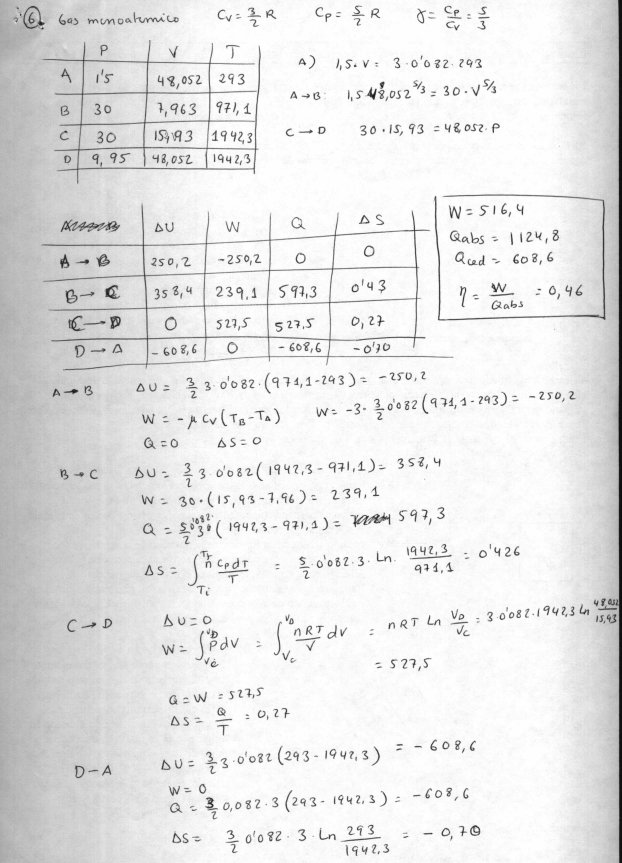 6. Gas monoatomico Cv = 3/2 R Cp = 5/2 R γ = Cp/Cv = 5/3
P V T
A 1'5 48,052 293
B 30 7,963 971,1
C 30 15,93 1942,3
D 9,95 48,052 1942,3
A) 1,5. V = 3·0'082·293
A→B: 1,5·48,052^5/3 = 30·V^5/3
C→D 30·15,93 = 48,052·P
ΔU W Q ΔS
A→B 250,2 -250,2 0 0
B→C 358,4 239,1 597,3 0'43
C→D 0 527,5 527,5 0,27
D→A -608,6 0 -608,6 -0'70
W = 516,4
Qabs = 1124,8
Qced = 608,6
η = W/Qabs = 0,46
A→B ΔU = 3/2 3·0'082·(971,1-293) = -250,2
W = -μ Cv (TB-TA) W = -3·3/2 0'082 (971,1-293) = -250,2
Q = 0 ΔS = 0
B→C ΔU = 3/2 3·0'082 (1942,3-971,1) = 358,4
W = 30·(15,93-7,96) = 239,1
Q = 5/2 0'082·3·(1942,3-971,1) = 597,3
ΔS = ∫Ti Tf n Cp dT/T = 5/2·0'082·3·Ln 1942,3/971,1 = 0'426
C→D ΔU = 0
W = ∫Vc VD P dV = ∫Vc VD nRT/V dV = nRT Ln VD/Vc = 3·0'082·1942,3 Ln 48,052/15,93
= 527,5
Q = W = 527,5
ΔS = Q/T = 0,27
D-A ΔU = 3/2 3·0'082 (293-1942,3) = -608,6
W = 0
Q = 3/2 0,082·3 (293-1942,3) = -608,6
ΔS = 3/2 0'082·3·Ln 293/1942,3 = -0,70